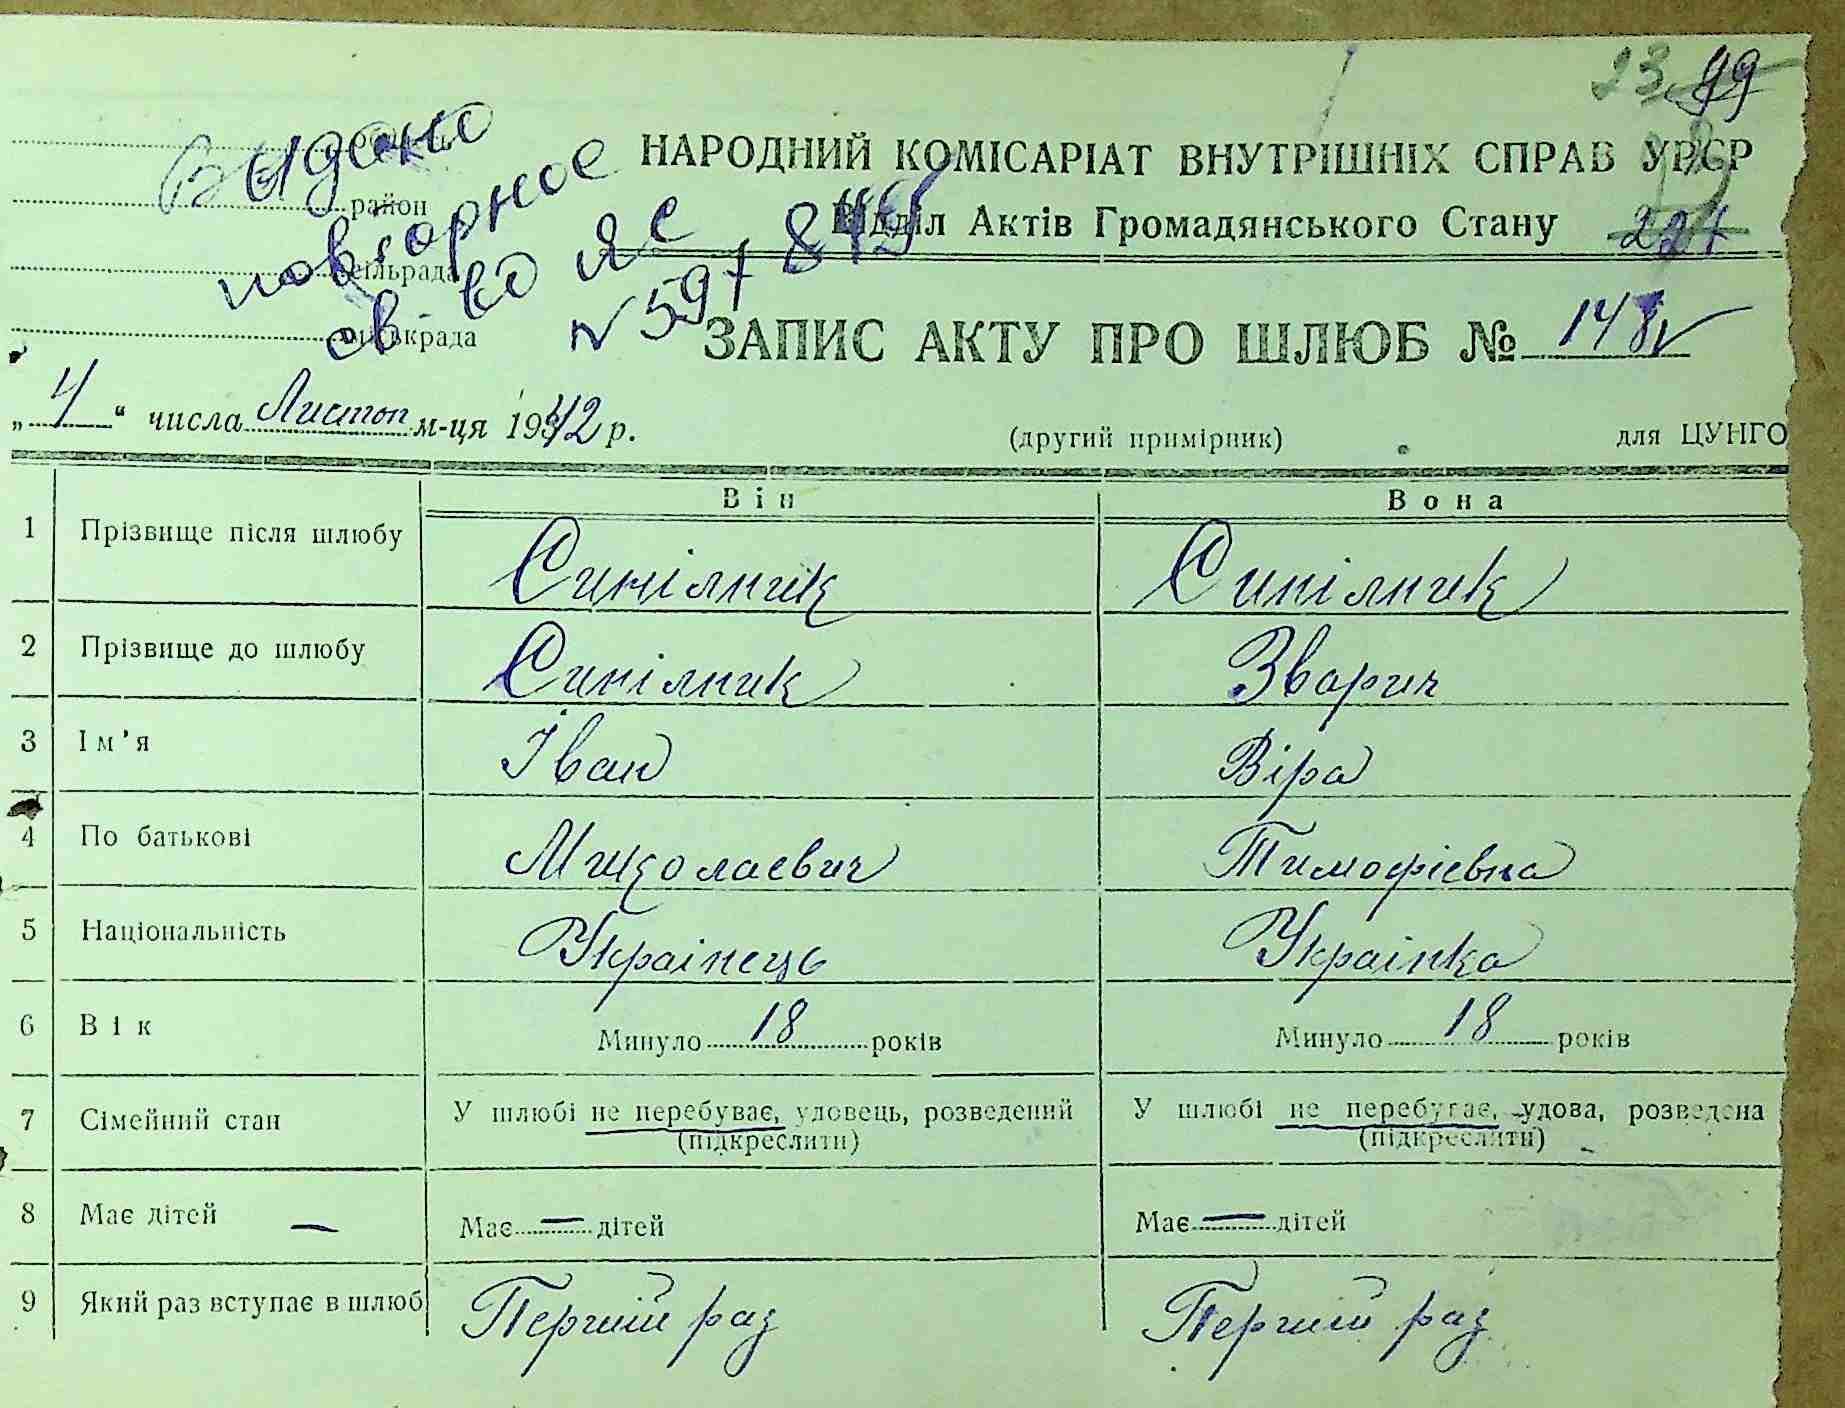 23 99
Видано
повторное
св-во ЯС
№ 597849
район
сільрада
міськрада
НАРОДНИЙ КОМІСАРІАТ ВНУТРІШНІХ СПРАВ УРСР
Відділ Актів Громадянського Стану
ЗАПИС АКТУ ПРО ШЛЮБ № 148
„4“ числа Листоп м-ця 1942 р.
(другий примірник)
для ЦУНГО
Він Вона
1 Прізвище після шлюбу Синілник Синілник
2 Прізвище до шлюбу Синілник Зварич
3 Ім'я Іван Віра
4 По батькові Миколаевич Тимофіевна
5 Національність Украінець Украінка
6 Вік Минуло 18 років Минуло 18 років
7 Сімейний стан У шлюбі не перебуває, удовець, розведений У шлюбі не перебуває, удова, розведена
(підкреслити) (підкреслити)
8 Має дітей — Має — дітей Має — дітей
9 Який раз вступає в шлюб Перший раз Перший раз